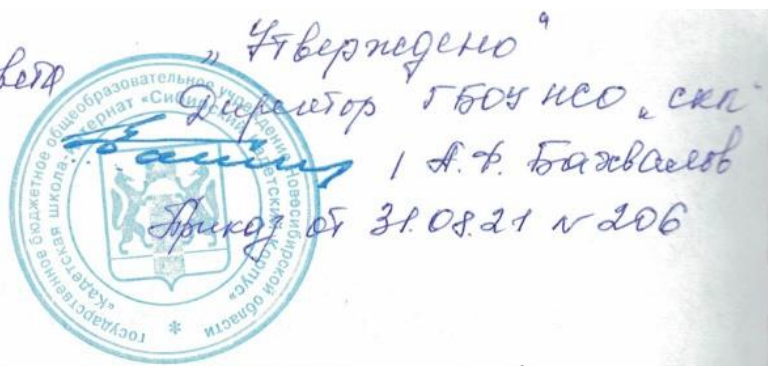 „Утверждено“
вета
Директор ГБОУ НСО „СКК“
/ А.Ф. Бахвалов
Приказ от 31.08.21 N 206
государственное бюджетное общеобразовательное учреждение Новосибирской области
«Кадетская школа-интернат «Сибирский Кадетский Корпус»